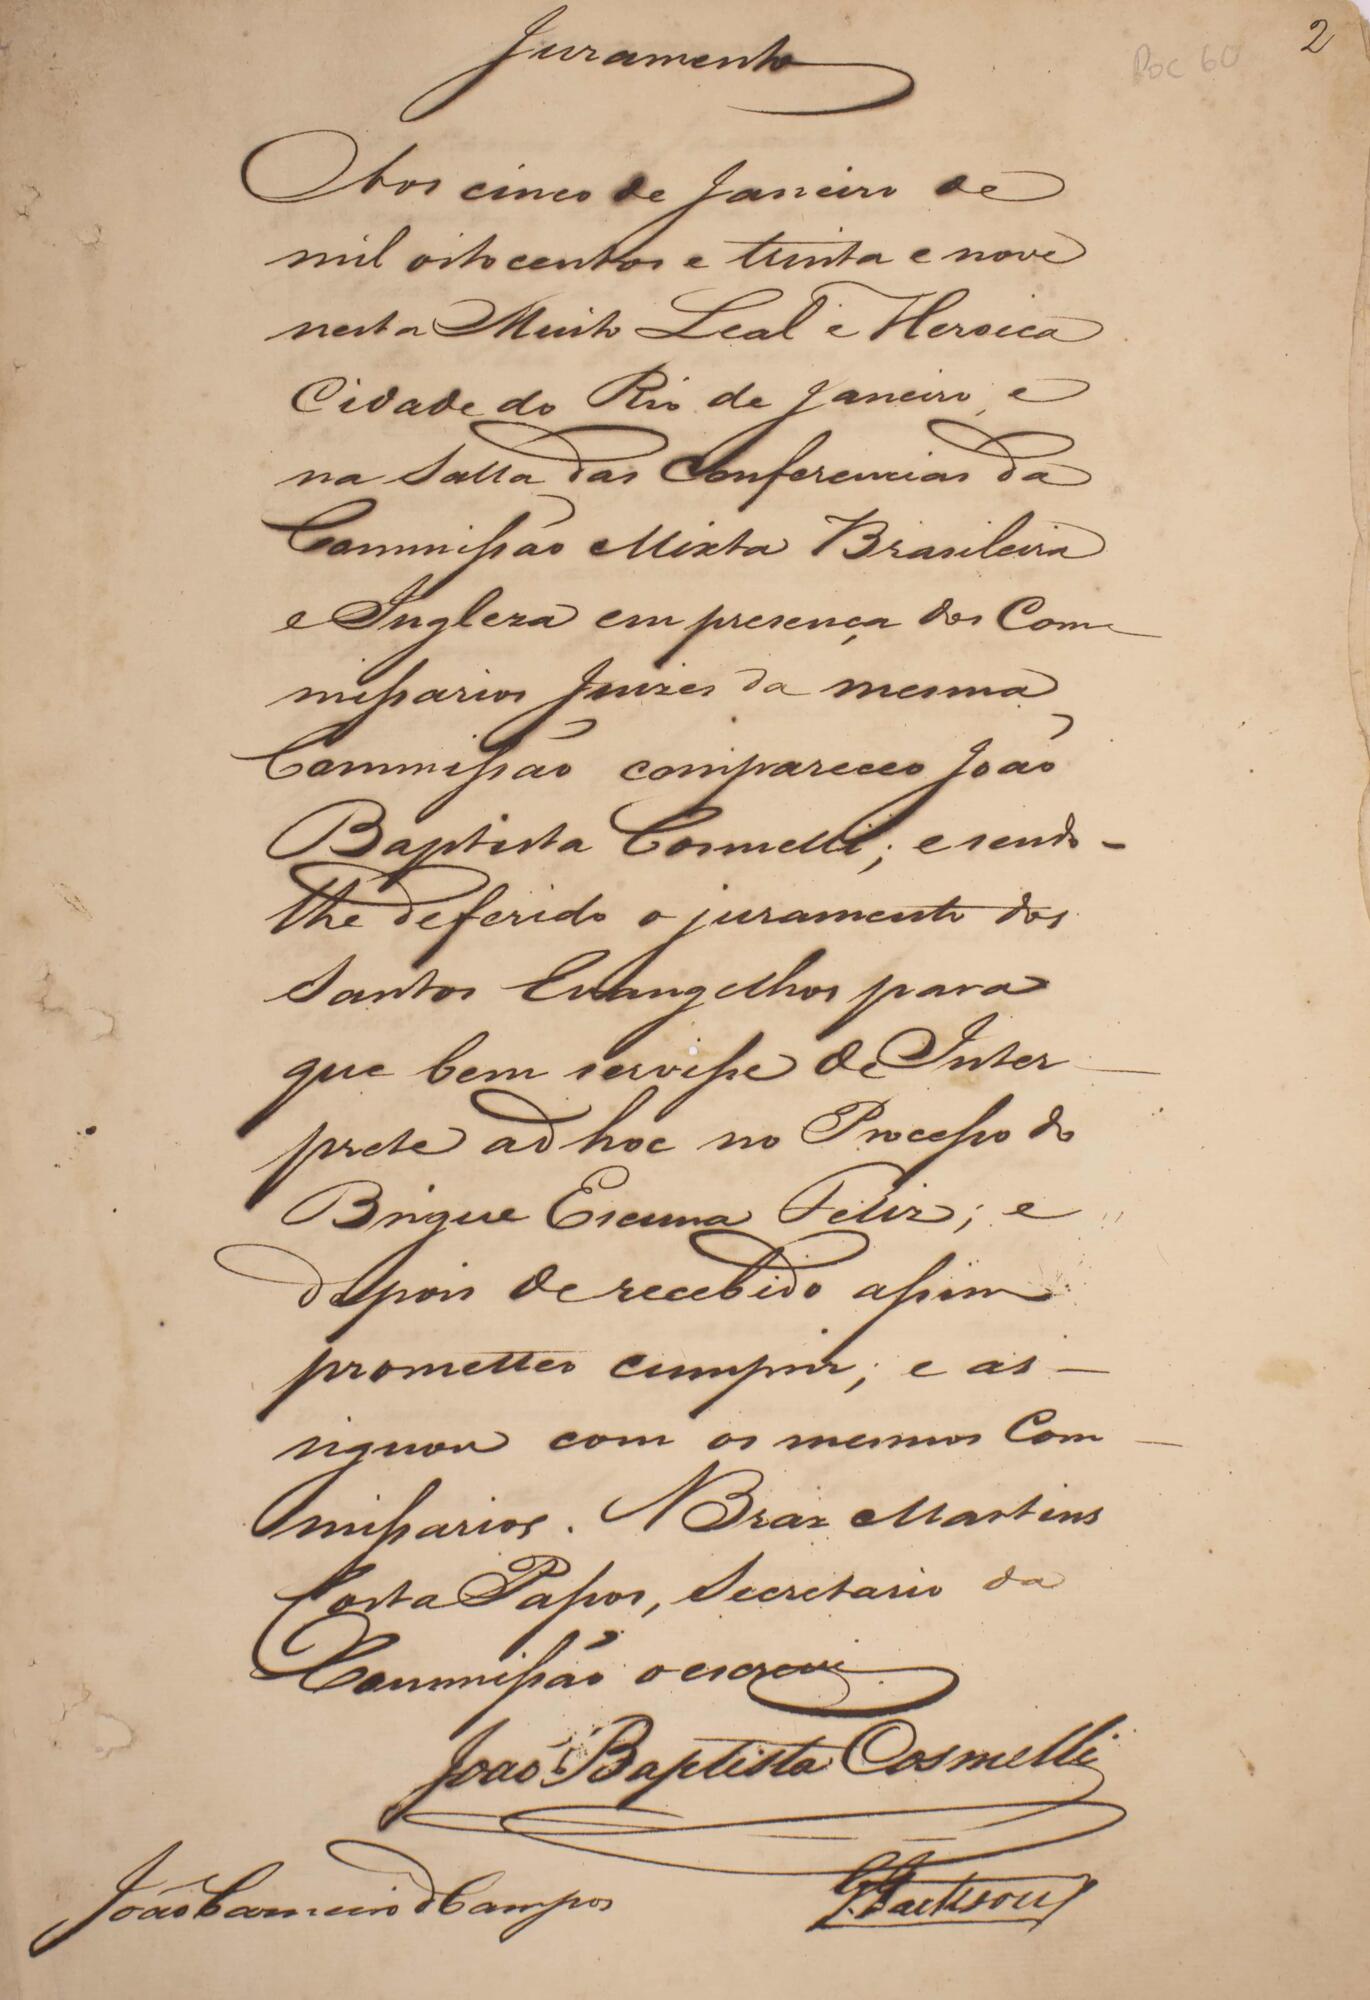 2
Doc 60
Juramento
Aos cinco de Janeiro de
mil oitocentos e trinta e nove
nesta Muito Leal e Heroica
Cidade do Rio de Janeiro, e
na Salla das Conferencias da
Commissão Mixta Brasileira
e Ingleza em presença dos Com-
missarios Juizes da mesma
Commissão compareceo João
Baptista Cosmelli; e sendo-
lhe deferido o juramento dos
Santos Evangelhos para
que bem servisse de Inter-
prete ad hoc no Processo do
Brigue Escuna Feliz; e
depois de recebido assim
prometteo cumprir; e as-
signou com os mesmos Com-
missarios. Braz Martins
Costa Passos, Secretario da
Commissão o escrevi
João Baptista Cosmelli
João Carneiro de Campos
G. Jackson